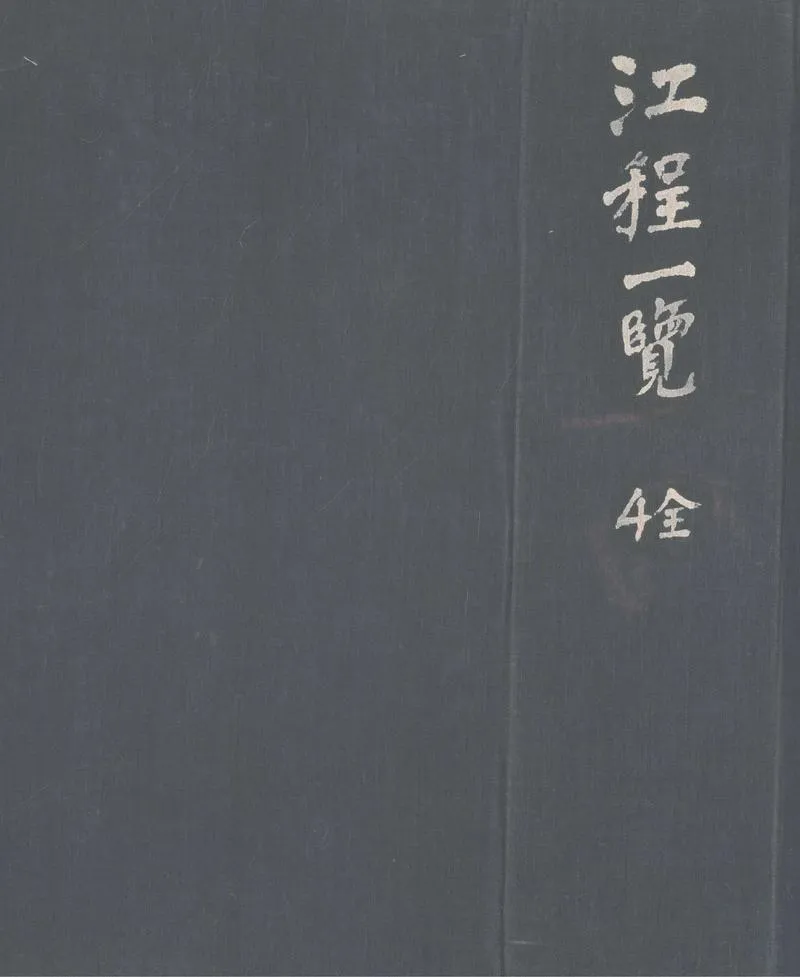 江程一覽
4全